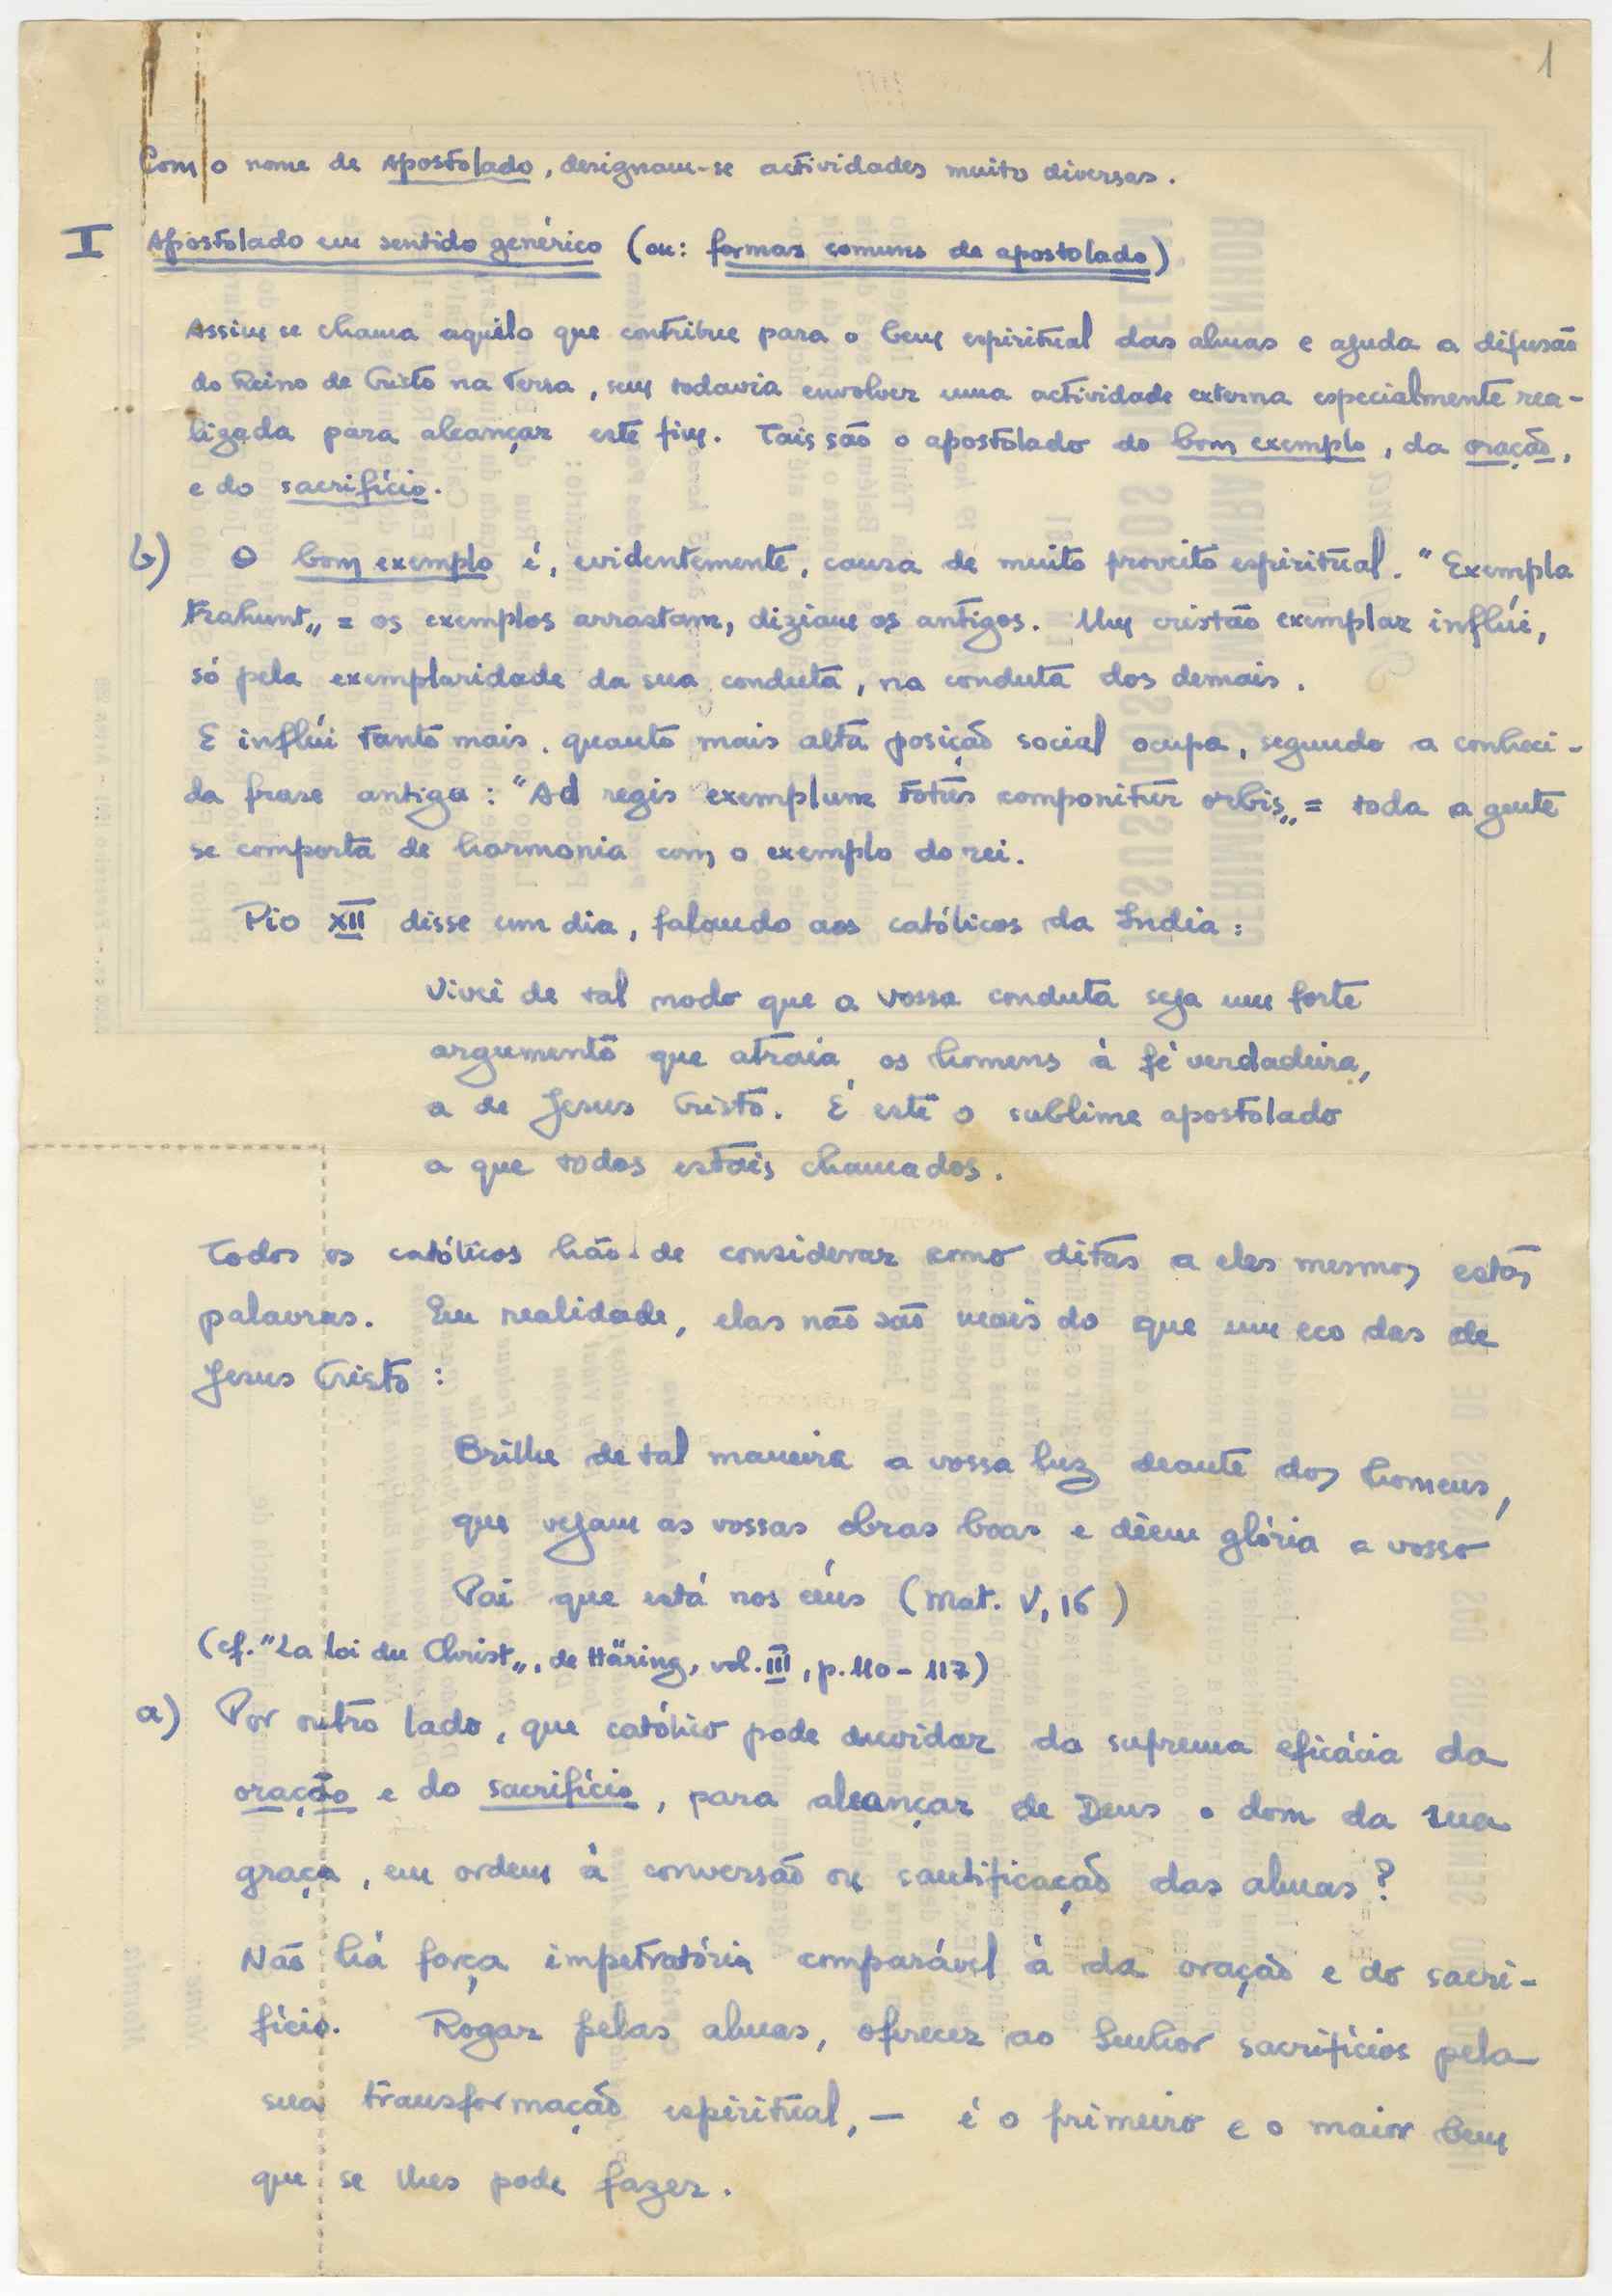 1
Com o nome de Apostolado, designam-se actividades muito diversas.
I Apostolado em sentido genérico (ou: formas comuns de apostolado)
Assim se chama aquilo que contribue para o bem espiritual das almas e ajuda a difusão
do Reino de Cristo na Terra, sem todavia envolver uma actividade externa especialmente rea-
lizada para alcançar este fim. Tais são o apostolado do bom exemplo, da oração,
e do sacrifício.
b) O bom exemplo é, evidentemente, causa de muito proveito espiritual. "Exempla
trahunt„ = os exemplos arrastam, diziam os antigos. Um cristão exemplar inflúi,
só pela exemplaridade da sua conduta, na conduta dos demais.
E inflúi tanto mais, quanto mais alta posição social ocupa, segundo a conheci-
da frase antiga: "Ad regis exemplum totus componitur orbis„ = toda a gente
se comporta de harmonia com o exemplo do rei.
Pio XII disse um dia, falando aos católicos da Índia:
Vivei de tal modo que a vossa conduta seja um forte
argumento que atraia os homens à fé verdadeira,
a de Jesus Cristo. É este o sublime apostolado
a que todos estais chamados.
Todos os católicos hão-de considerar como ditas a eles mesmos estas
palavras. Em realidade, elas não são mais do que um eco das de
Jesus Cristo:
Brilhe de tal maneira a vossa luz deante dos homens,
que vejam as vossas obras boas e dêem glória a vosso
Pai que está nos céus (Mat. V, 16)
(cf. "La loi du Christ„, de Häring, vol. III, p. 110-117)
a) Por outro lado, que católico pode duvidar da suprema eficácia da
oração e do sacrifício, para alcançar de Deus o dom da sua
graça, em ordem à conversão ou santificação das almas?
Não há força impetratória comparável à da oração e do sacri-
fício. Rogar pelas almas, oferecer ao Senhor sacrifícios pela
sua transformação espiritual, — é o primeiro e o maior bem
que se lhes pode fazer.